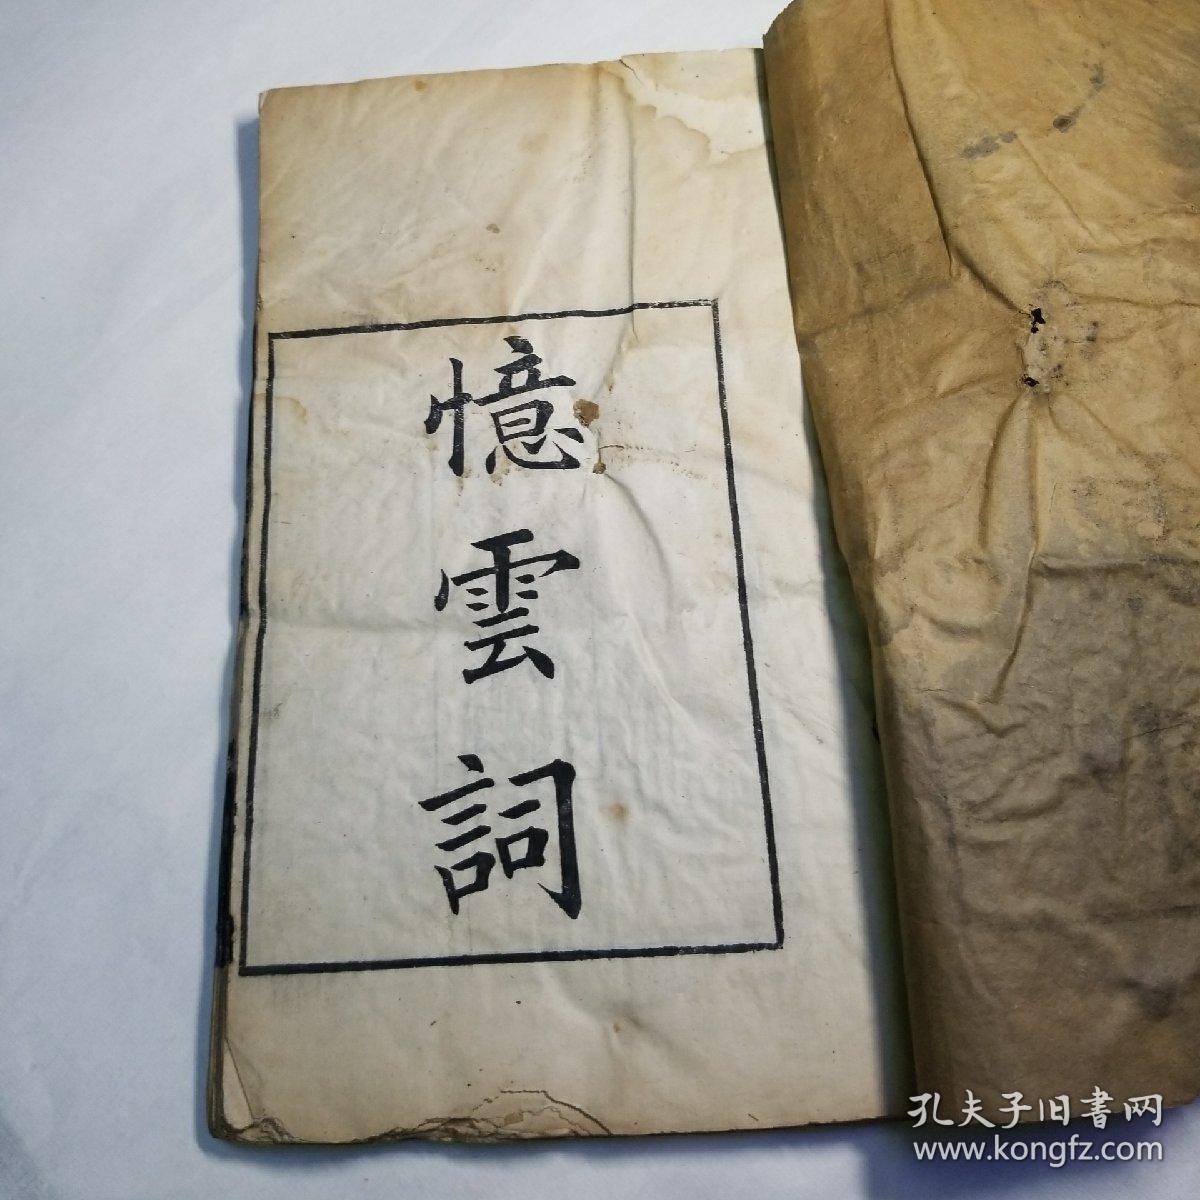 憶雲詞
孔夫子旧書网
www.kongfz.com